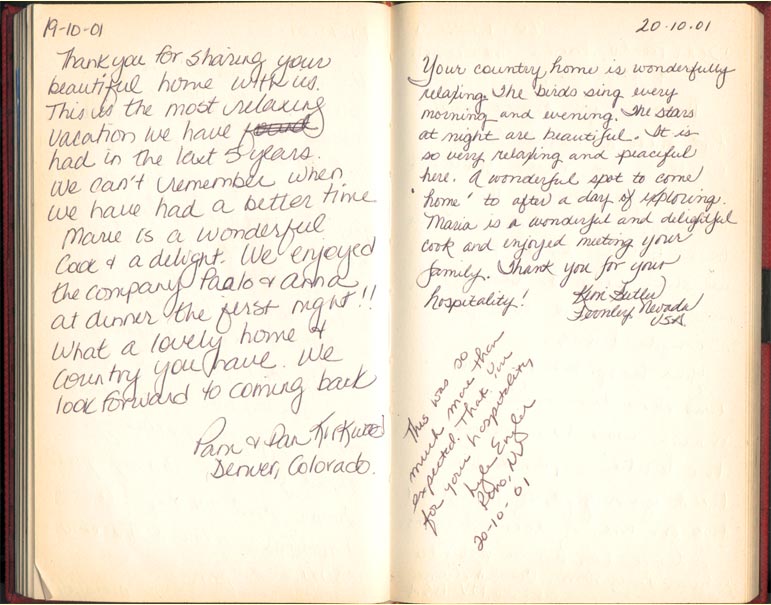 19-10-01
Thank you for sharing your
beautiful home with us.
This is the most relaxing
vacation we have found
had in the last 5 years.
We can't remember when
we have had a better time
Marie is a wonderful
Cook & a delight. We enjoyed
the company Paolo & Anna
at dinner the first night!!
What a lovely home &
Country you have. We
look forward to coming back
Pam & Dan Kirkwood
Denver, Colorado.
20-10-01
Your country home is wonderfully
relaxing. The birds sing every
morning and evening. The stars
at night are beautiful. It is
so very relaxing and peaceful
here. A wonderful spot to come
'home' to after a day of exploring.
Maria is a wonderful and delightful
cook and enjoyed meeting your
family. Thank you for your
hospitality!
Fernley, Nevada
USA
This was so
much more than
expected. Thank You
for your hospitality
Lyle Engler
Reno, NV
20-10-01